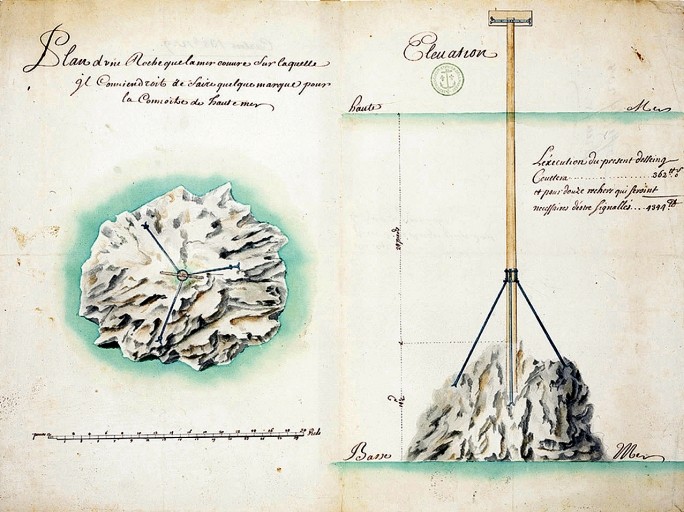 Plan d'vne Roche que la mer couvre sur laquelle
jl Conviendroit de faire quelque marque pour
la Connoitre de haute mer
Elevation
haute Mer
L'execution du present desseing
Couttera 362 ₶
et pour douze rochers qui seroint
necessaires d'estre signallés 4344 ₶
pieds
Basse Mer